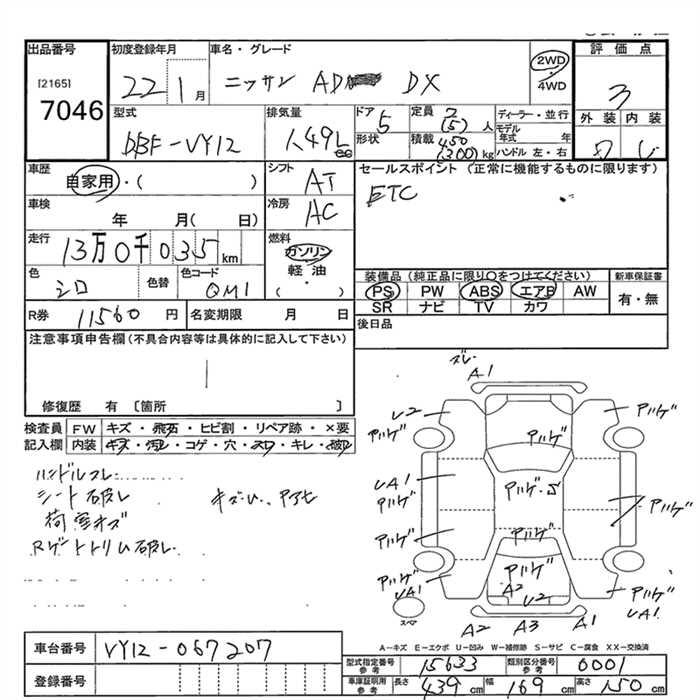 出品番号
[2165]
7046
初度登録年月
22 1月
車名・グレード
ニッサン AD DX
2WD
・
4WD
評価点
3
型式
DBF-VY12
排気量
1.49L
cc
ドア
5
形状
定員
2
(5)人
積載
450
(300)kg
ディーラー・並行
モデル年式 年
ハンドル 左・右
外装 内装
車歴
自家用・( )
シフト
AT
セールスポイント (正常に機能するものに限ります)
ETC
車検
年 月( 日)
冷房
AC
走行
13万0千035km
燃料
ガソリン
・
軽油
・
( )
色
シロ
色替
色コード
QM1
装備品(純正品に限り○をつけてください)
PS PW ABS エアB AW
SR ナビ TV カワ
新車保証書
有・無
R券 11560 円
名変期限 月 日
後日品
注意事項申告欄(不具合内容等は具体的に記入して下さい)
修復歴 有 〔箇所 〕
検査員
記入欄
FW キズ・飛石・ヒビ割・リペア跡・×要
内装 キズ・汚レ・コゲ・穴・スレ・キレ・破レ
ハンドルスレ
シート破レ
荷室キズ
Rゲートトリム破レ
ズレ
A1
U2
アバタ
アバタ
アバタ
UA1
アバタ
アバタ・S
アバタ
アバタ
アバタ
アバタ
UA1
アバタ
A2
U2
アバタ
UA1
スペア
A2 A3 A1
A-キズ E-エクボ U-凹み W-補修跡 S-サビ C-腐食 XX-交換済
車台番号
VY12-067207
登録番号
型式指定番号
参考
15633
類別区分番号
参考
0001
車庫証明用
参考
長さ 439cm
幅 169cm
高さ 150cm